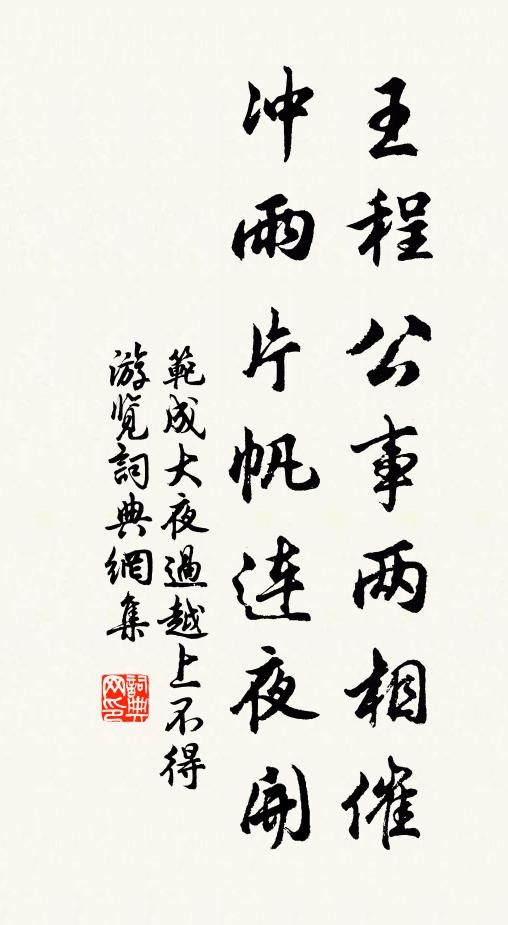 王程公事两相催
冲雨片帆连夜開
範成大夜過越上不得
游览詞典網集
詞典网印